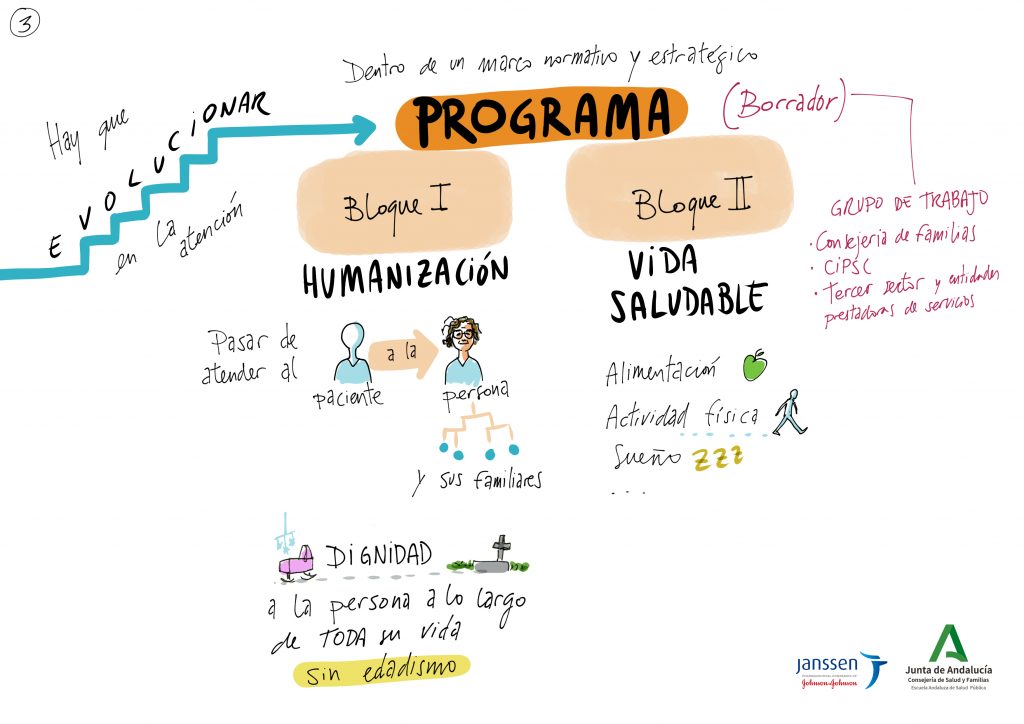 3
Dentro de un marco normativo y estratégico
PROGRAMA
(Borrador)
Hay que
EVOLUCIONAR
en la
atención
Bloque I
HUMANIZACIÓN
Pasar de
atender al
paciente
a la
persona
y sus familiares
DIGNIDAD
a la persona a lo largo
de TODA su vida
sin edadismo
Bloque II
VIDA
SALUDABLE
Alimentación
Actividad física
Sueño ZZZ
...
GRUPO DE TRABAJO
· Consejería de familias
· CIPSC
· Tercer sector y entidades
prestadoras de servicios
janssen
PHARMACEUTICAL COMPANIES OF
Johnson&Johnson
Junta de Andalucía
Consejería de Salud y Familias
Escuela Andaluza de Salud Pública